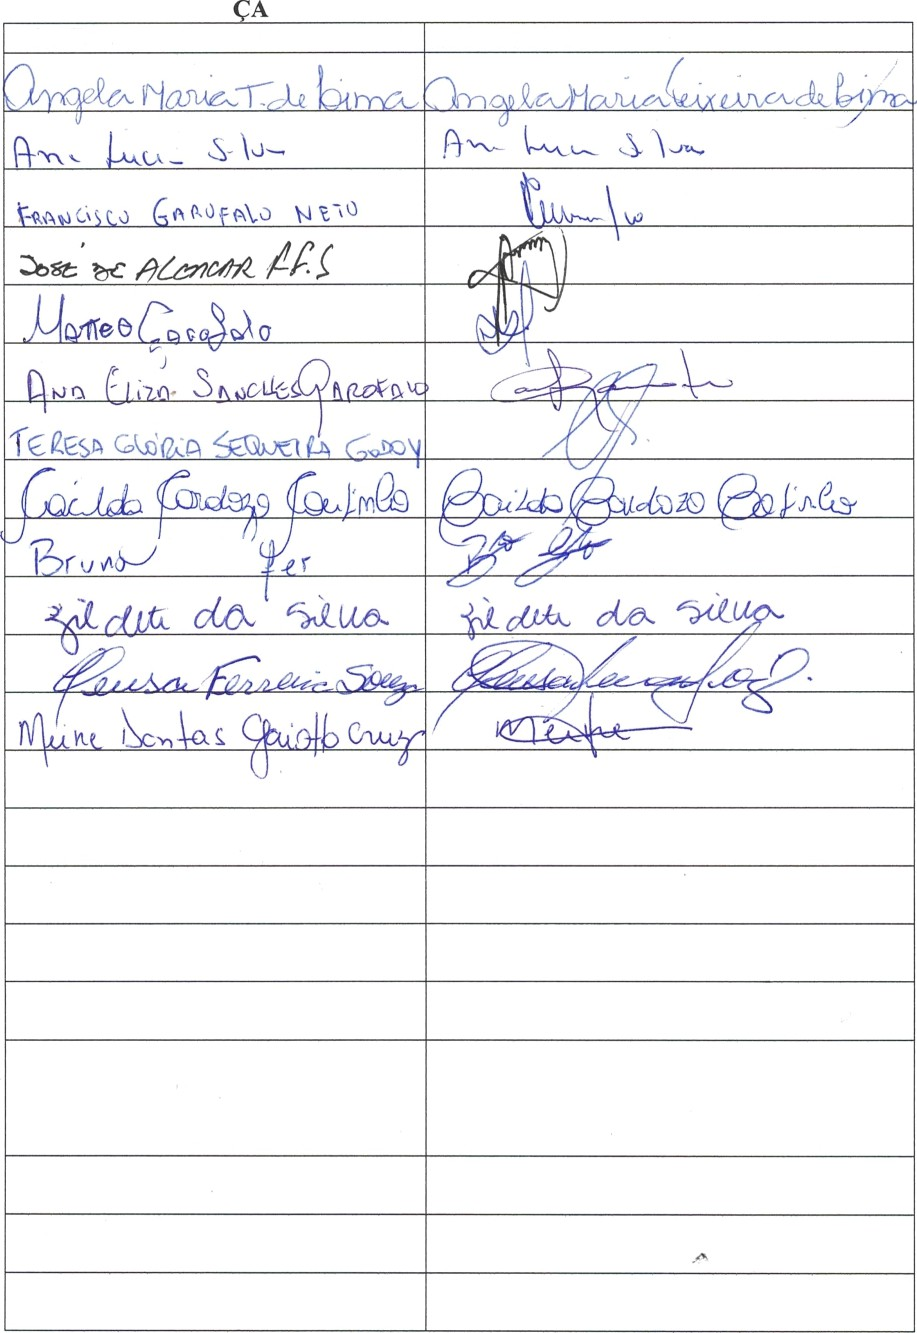 ÇA
Angela Maria T. de Lima Angela Maria Teixeira de Lima
Ana Lucia Silva Ana Lucia Silva
FRANCISCO GAROFALO NETO
JOSÉ DE ALENCAR F.F.S
MATTEO Garofalo
ANA ELIZA SANCHES GAROFALO
TERESA GLÓRIA SEQUEIRA GODOY
Cacilda Cardozo Coutinho Cacilda Cardozo Cotinho
Bruna
Zildete da Silva Zildete da Silva
Neusa Ferreira Souza
Meire Dantas Gaiotto Cruz Meire